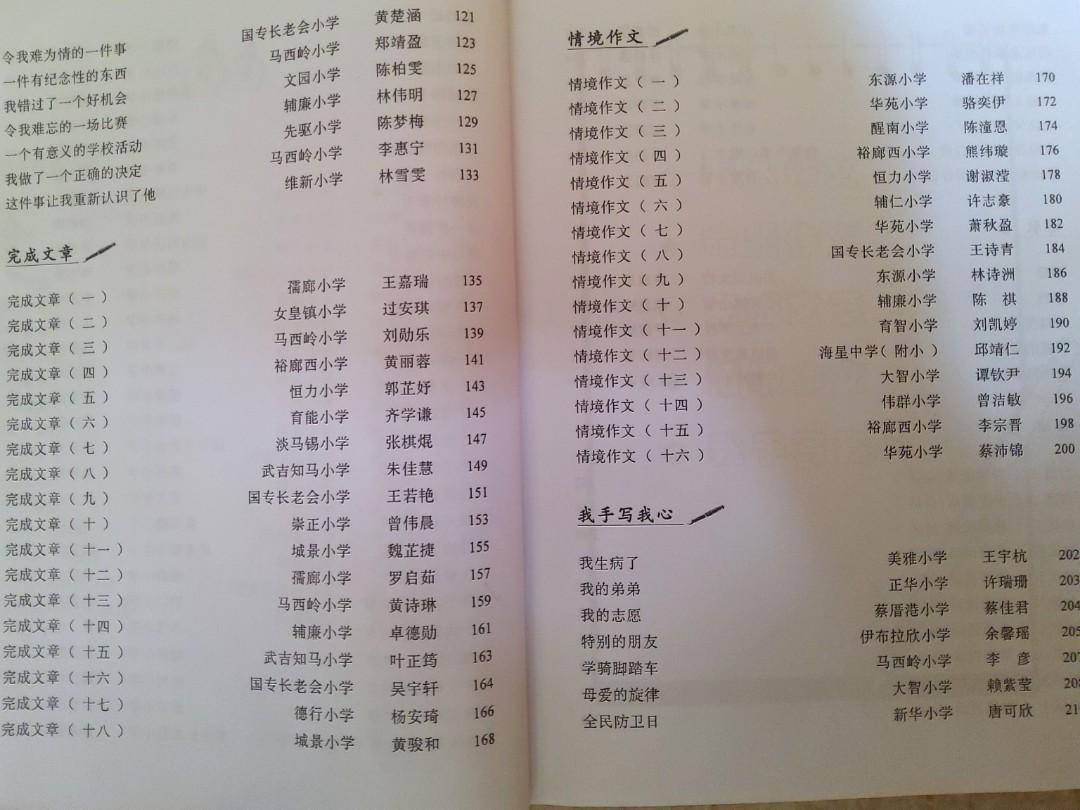 令我难为情的一件事 国专长老会小学 黄楚涵 121
一件有纪念性的东西 马西岭小学 郑靖盈 123
我错过了一个好机会 文园小学 陈柏雯 125
令我难忘的一场比赛 辅廉小学 林伟明 127
一个有意义的学校活动 先驱小学 陈梦梅 129
我做了一个正确的决定 马西岭小学 李惠宁 131
这件事让我重新认识了他 维新小学 林雪雯 133
完成文章
完成文章（一） 孺廊小学 王嘉瑞 135
完成文章（二） 女皇镇小学 过安琪 137
完成文章（三） 马西岭小学 刘勋乐 139
完成文章（四） 裕廊西小学 黄丽蓉 141
完成文章（五） 恒力小学 郭芷妤 143
完成文章（六） 育能小学 齐学谦 145
完成文章（七） 淡马锡小学 张棋焜 147
完成文章（八） 武吉知马小学 朱佳慧 149
完成文章（九） 国专长老会小学 王若艳 151
完成文章（十） 崇正小学 曾伟晨 153
完成文章（十一） 城景小学 魏芷捷 155
完成文章（十二） 孺廊小学 罗启茹 157
完成文章（十三） 马西岭小学 黄诗琳 159
完成文章（十四） 辅廉小学 卓德勋 161
完成文章（十五） 武吉知马小学 叶正筠 163
完成文章（十六） 国专长老会小学 吴宇轩 164
完成文章（十七） 德行小学 杨安琦 166
完成文章（十八） 城景小学 黄骏和 168
情境作文
情境作文（一） 东源小学 潘在祥 170
情境作文（二） 华苑小学 骆奕伊 172
情境作文（三） 醒南小学 陈潼恩 174
情境作文（四） 裕廊西小学 熊纬璇 176
情境作文（五） 恒力小学 谢淑滢 178
情境作文（六） 辅仁小学 许志豪 180
情境作文（七） 华苑小学 萧秋盈 182
情境作文（八） 国专长老会小学 王诗青 184
情境作文（九） 东源小学 林诗洲 186
情境作文（十） 辅廉小学 陈祺 188
情境作文（十一） 育智小学 刘凯婷 190
情境作文（十二） 海星中学（附小） 邱靖仁 192
情境作文（十三） 大智小学 谭钦尹 194
情境作文（十四） 伟群小学 曾洁敏 196
情境作文（十五） 裕廊西小学 李宗晋 198
情境作文（十六） 华苑小学 蔡沛锦 200
我手写我心
我生病了 美雅小学 王宇杭 202
我的弟弟 正华小学 许瑞珊 203
我的志愿 蔡厝港小学 蔡佳君 204
特别的朋友 伊布拉欣小学 余馨瑶 205
学骑脚踏车 马西岭小学 李彦 207
母爱的旋律 大智小学 赖紫莹 208
全民防卫日 新华小学 唐可欣 21